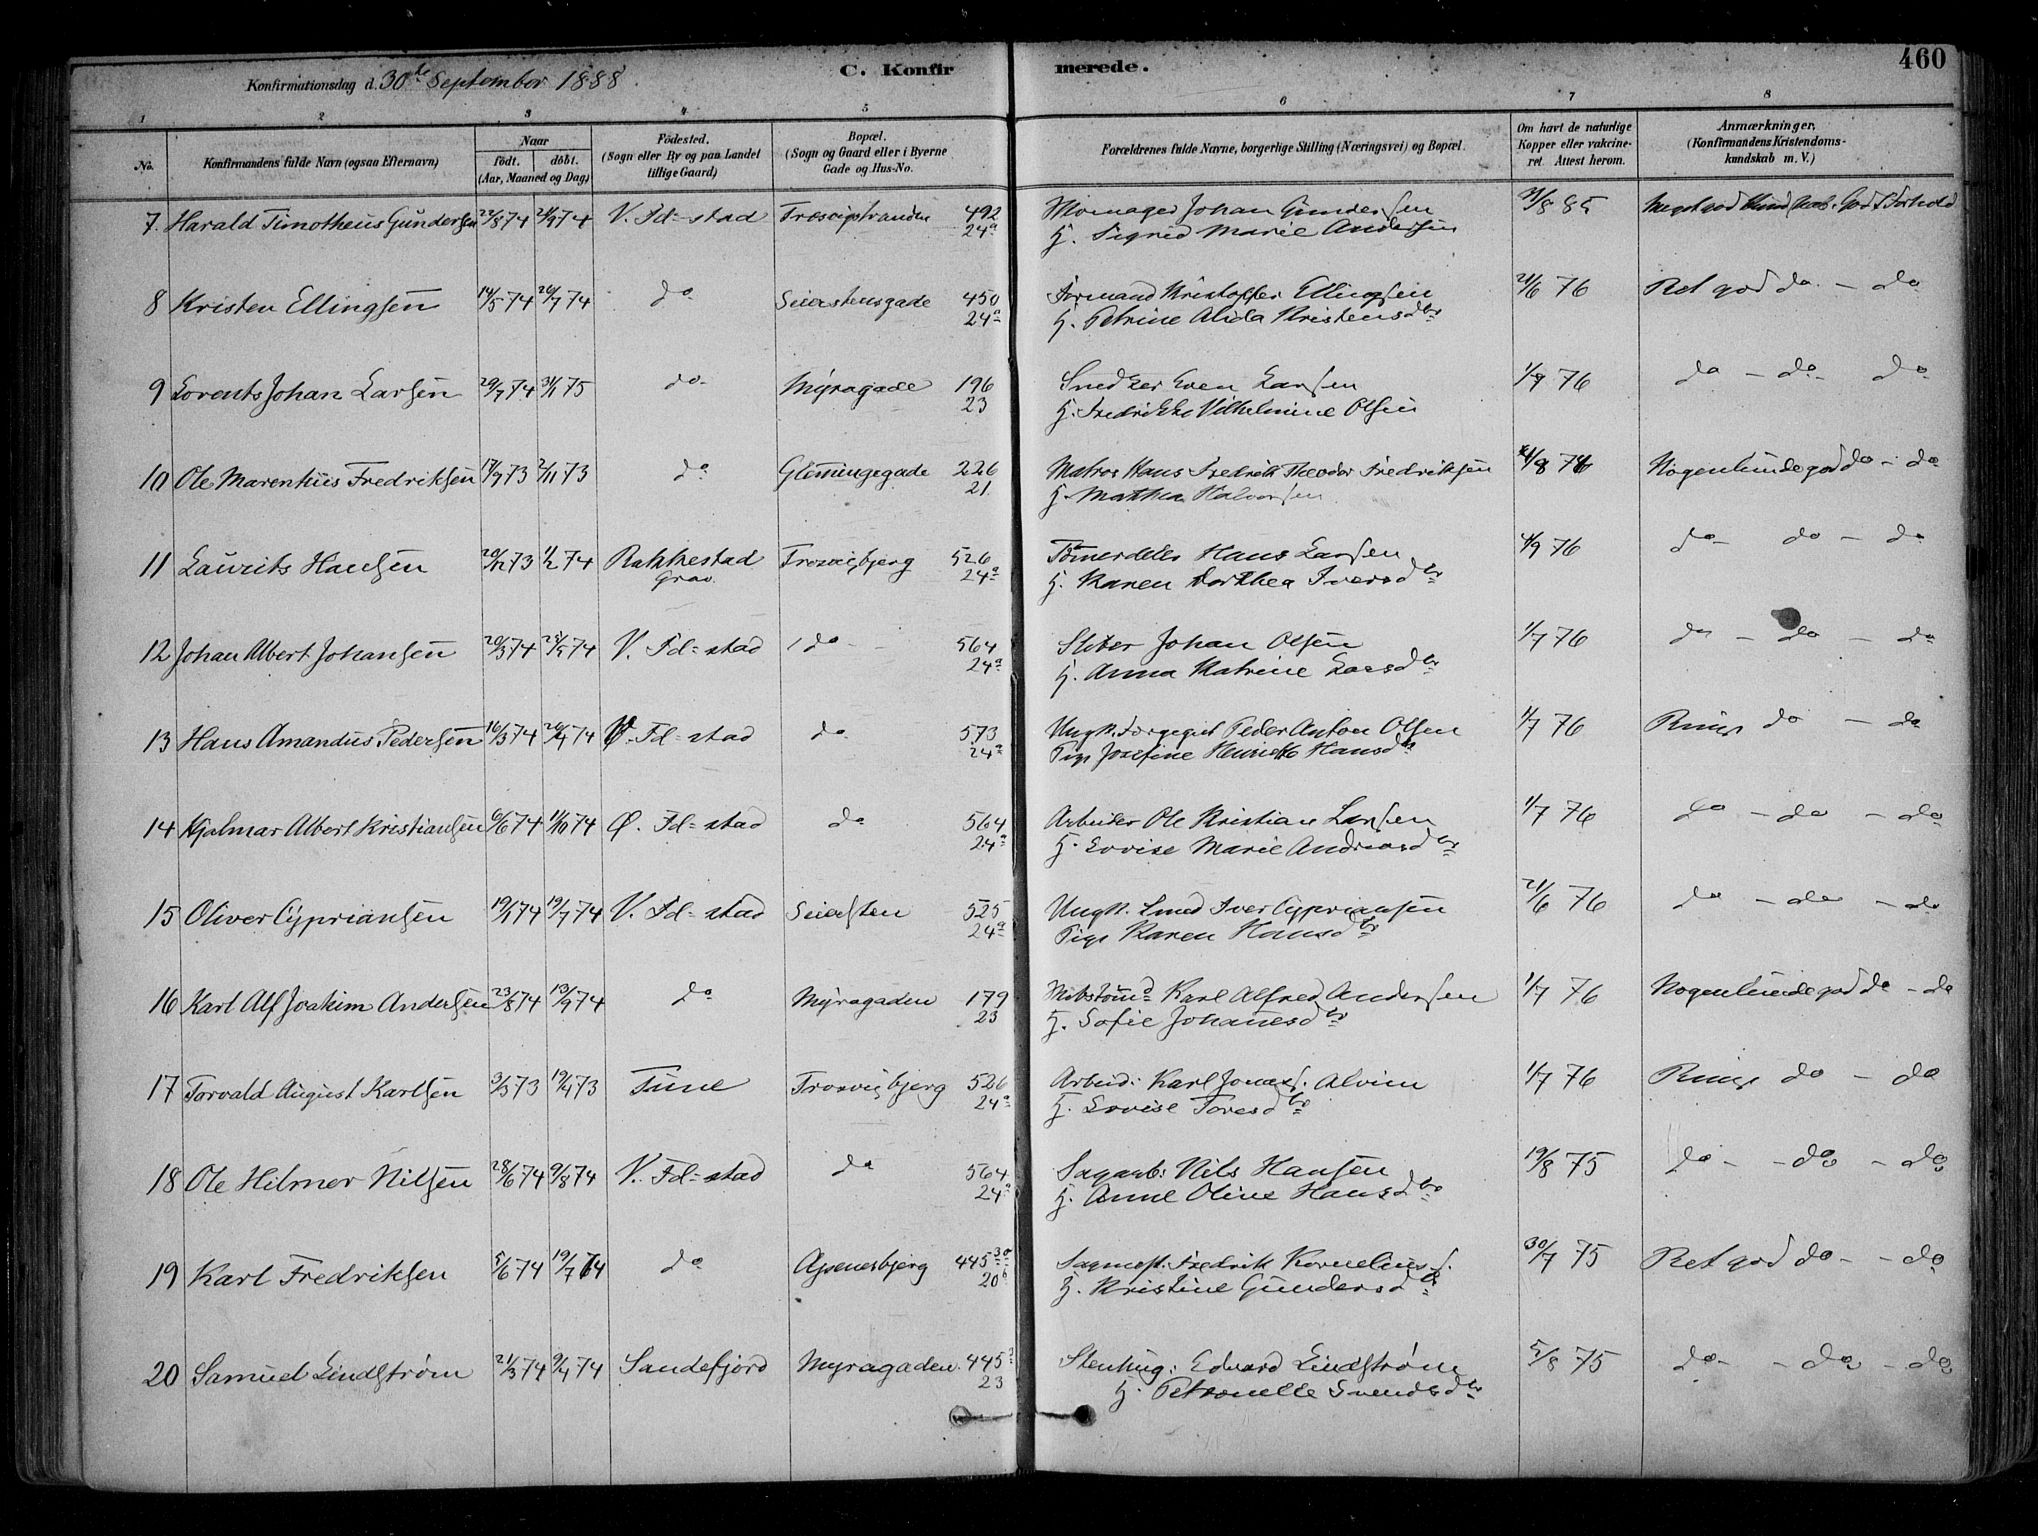 460
Konfirmationsdag d. 30te September 1888.
C. Konfirmerede.
1 2 3 4 5 6 7 8
No. Konfirmandens fulde Navn (ogsaa Efternavn) Naar født. døbt. (Aar, Maaned og Dag) Fødested. (Sogn eller By og paa Landet tillige Gaard) Bopæl. (Sogn og Gaard eller i Byerne Gade og Hus-No. Forældrenes fulde Navne, borgerlige Stilling (Næringsvei) og Bopæl. Om havt de naturlige Kopper eller vakcineret. Attest herom. Anmærkninger, (Konfirmandens Kristendomskundskab m. V.)
7. Harald Timotheus Gundersen 22/8 74 V. Fd=stad 492 Johan Gundersen 85
24a H. Sigrid Marie Andersen
8 Kristen Ellingsen 14/5 74 26/7 74 do Seierstensgade 450 Formand Kristoffer Ellingsen 21/6 76 Ret god do - do
24a H. Petrine Alida Kristensdtr
9 Lorents Johan Larsen 29/7 74 31/1 75 do Myragade 196 Snedker Even Larsen 1/9 76 do - do - do
23 H. Fredrikke Vilhelmine Olsen
10 Ole Marenius Fredriksen 17/9 73 2/11 73 do Glemingegade 226 Matros Hans Fredrik Theodor Fredriksen Nogenlunde god do - do
21. H. Mathea Halvorsen
11 Laurits Hansen 20/12 73 1/2 74 Rakkestad Trosvigbjerg 526 Hans Larsen 4/9 76 do - do - do
Grav. 24a H. Karen Dorthea Iversdtr
12 Johan Albert Johansen 20/3 74 25/5 74 V. Fd=stad do 564 Johan Olsen 1/7 76 do - do - do
24a H. Anna Katrine Larsdtr
13 Hans Amandus Pedersen 16/3 74 26/4 74 Fd=stad do 573 Ungk. Peder Anton Olsen 1/7 76 do - do
24a Pige Josefine Henrikke Hansdtr
14 Hjalmar Albert Kristiansen 6/6 74 11/10 74 Ø. Fd=stad do 564 Arbeider Ole Kristian Larsen 1/7 76 do - do - do
24a H. Lovise Marie Andreasdtr
15 Oliver Cypriansen 19/1 74 19/7 74 V. Fd=stad Seiersten 525 Ungk. Smed Iver Cypriansen 21/6 76 do - do - do
24a Pige Karen Hansdtr
16 Karl Alf Joakim Andersen 23/8 74 13/9 74 do Myragaden 179 Karl Alfred Andersen 1/7 76 Nogenlunde god do - do
23 H. Sofie Johannesdtr
17 Torvald August Karlsen 3/3 73 19/4 73 Tune Trosvigbjerg 526 Arbeid: Karl Jonass. Alvim 1/7 76 do - do
24a H. Lovise Toresdtr
18 Ole Hilmer Nilsen 28/6 74 9/8 74 V. Fd=stad do 564 Sagarb: Nils Hansen 19/8 75 do - do - do
24a H. Anne Oline Hansdtr
19 Karl Fredriksen 5/6 74 19/7 do Apenesbjerg 445 30 Sagmest. Fredrik Kornelius s. 30/7 75 Ret god do - do
20b H. Kristine Gundersdtr
20 Samuel Lindstrøm 21/3 74 9/4 74 Sandefjord Myragaden. 445 Stenhug: Edvard Lindstrøm 5/8 75 do - do - do
23 H. Petronelle Svendsdtr